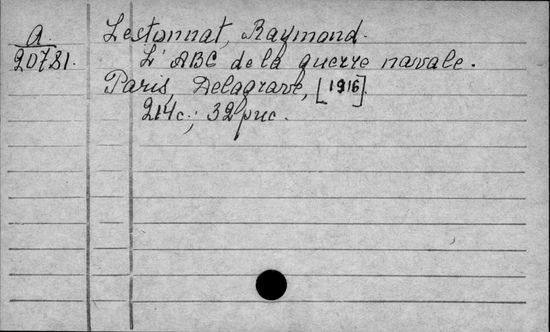 A
20781.
Lestonnat, Raymond.
L'ABC de la guerre navale.
Paris, Delagrave, [1916].
214c.; 32рис.